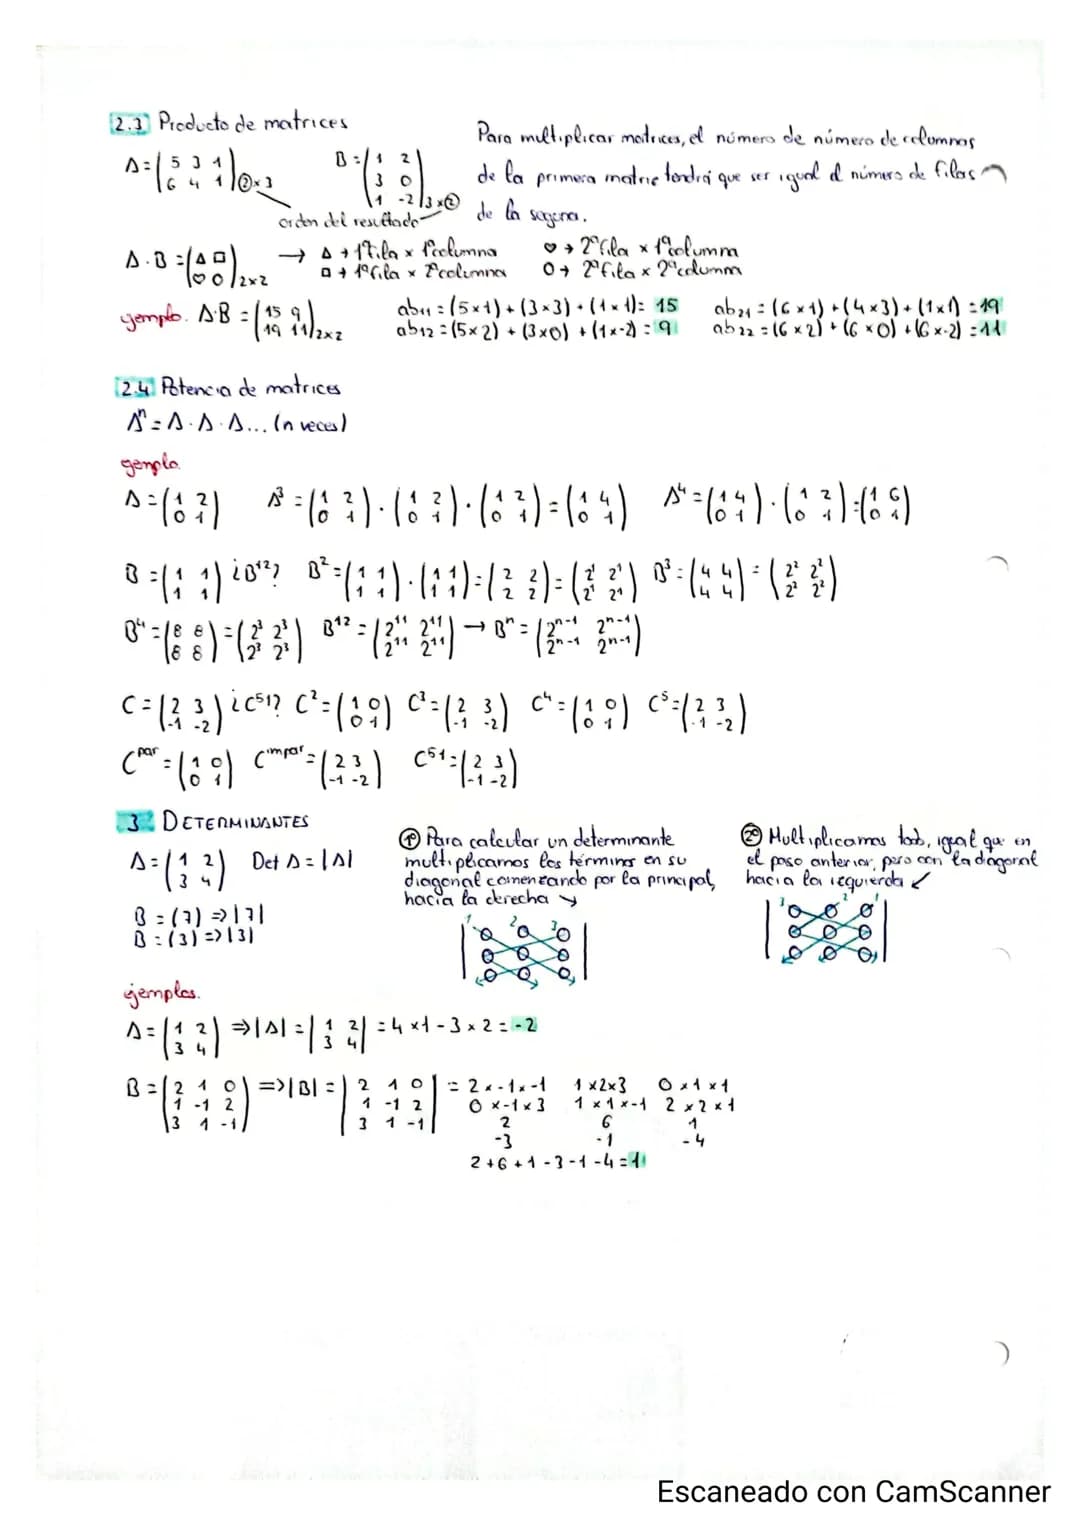 2.3 Producto de matrices
A = (5 3 1 / 6 4 1) 2×3   B = (1 2 / 3 0 / 1 -2) 3×2
orden del resultado
Para multiplicar matrices, el número de número de columnas
de la primera matriz tendrá que ser igual al número de filas
de la seguna.
A·B = (△ □ / ♡ O) 2×2 → △ → 1ª fila × 1ª columna   ♡ → 2ª fila × 1ª columna
□ → 1ª fila × 2ª columna   O → 2ª fila × 2ª columna
ejemplo. A·B = (15 9 / 19 11) 2×2
ab11 = (5×1) + (3×3) + (1×1) = 15   ab21 = (6×1) + (4×3) + (1×1) = 19
ab12 = (5×2) + (3×0) + (1×-2) = 9   ab22 = (6×2) + (6×0) + (6×-2) = 11
2.4 Potencia de matrices
Aⁿ = A·A·A... (n veces)
ejemplo.
A = (1 2 / 0 1)   A³ = (1 2 / 0 1)·(1 2 / 0 1)·(1 2 / 0 1) = (1 4 / 0 1)   A⁴ = (1 4 / 0 1)·(1 2 / 0 1) = (1 6 / 0 1)
B = (1 1 / 1 1) ¿B¹²?   B² = (1 1 / 1 1)·(1 1 / 1 1) = (2 2 / 2 2) = (2¹ 2¹ / 2¹ 2¹)   B³ = (4 4 / 4 4) = (2² 2² / 2² 2²)
B⁴ = (8 8 / 8 8) = (2³ 2³ / 2³ 2³)   B¹² = (2¹¹ 2¹¹ / 2¹¹ 2¹¹) → Bⁿ = (2ⁿ⁻¹ 2ⁿ⁻¹ / 2ⁿ⁻¹ 2ⁿ⁻¹)
C = (2 3 / -1 -2) ¿C⁵¹?   C² = (1 0 / 0 1)   C³ = (2 3 / -1 -2)   C⁴ = (1 0 / 0 1)   C⁵ = (2 3 / -1 -2)
C^par = (1 0 / 0 1)   C^impar = (2 3 / -1 -2)   C⁵¹ = (2 3 / -1 -2)
3. DETERMINANTES
A = (1 2 / 3 4)   Det A = |A|
B = (7) ⇒ |7|
B = (3) ⇒ |3|
1º Para calcular un determinante
multiplicamos los términos en su
diagonal comenzando por la principal,
hacia la derecha ↘
1 2 3
2º Multiplicamos todo, igual que en
el paso anterior, pero con la diagonal
hacia la izquierda ↙
3 2 1
ejemplos.
A = (1 2 / 3 4) ⇒ |A| = |1 2 / 3 4| = 4×1 - 3×2 = -2
B = (2 1 0 / 1 -1 2 / 3 1 -1) ⇒ |B| = |2 1 0 / 1 -1 2 / 3 1 -1| = 2×-1×-1   1×2×3   0×1×1
0×-1×3   1×1×-1   2×2×1
2   6   1
-3   -1   -4
2+6+1-3-1-4 = 1
Escaneado con CamScanner